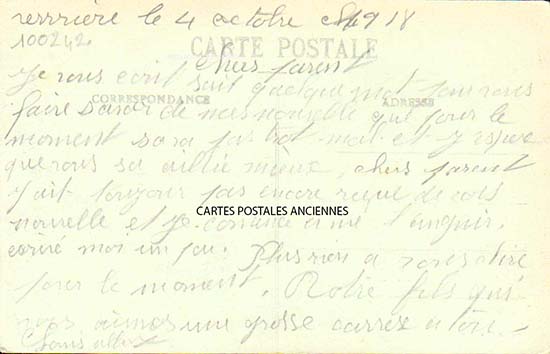 le 4 octobre 1918
100242
CARTE POSTALE
Chers parent
Je vous écrit sait quelque mot pour vous
CORRESPONDANCE
ADRESSE
faire savoir de mes nouvelle qui pour le
moment sa va pas trot mal et j'espere
que vous sa aille mieux, chers parent
j'ait toujour pas encore reçue de vos
nouvelle et je commence a me languir.
CARTES POSTALES ANCIENNES
ecrivé moi un peu. Plus rien a vous dire
pour le moment. Votre fils qui
vous aimes une grosse carresse a tous